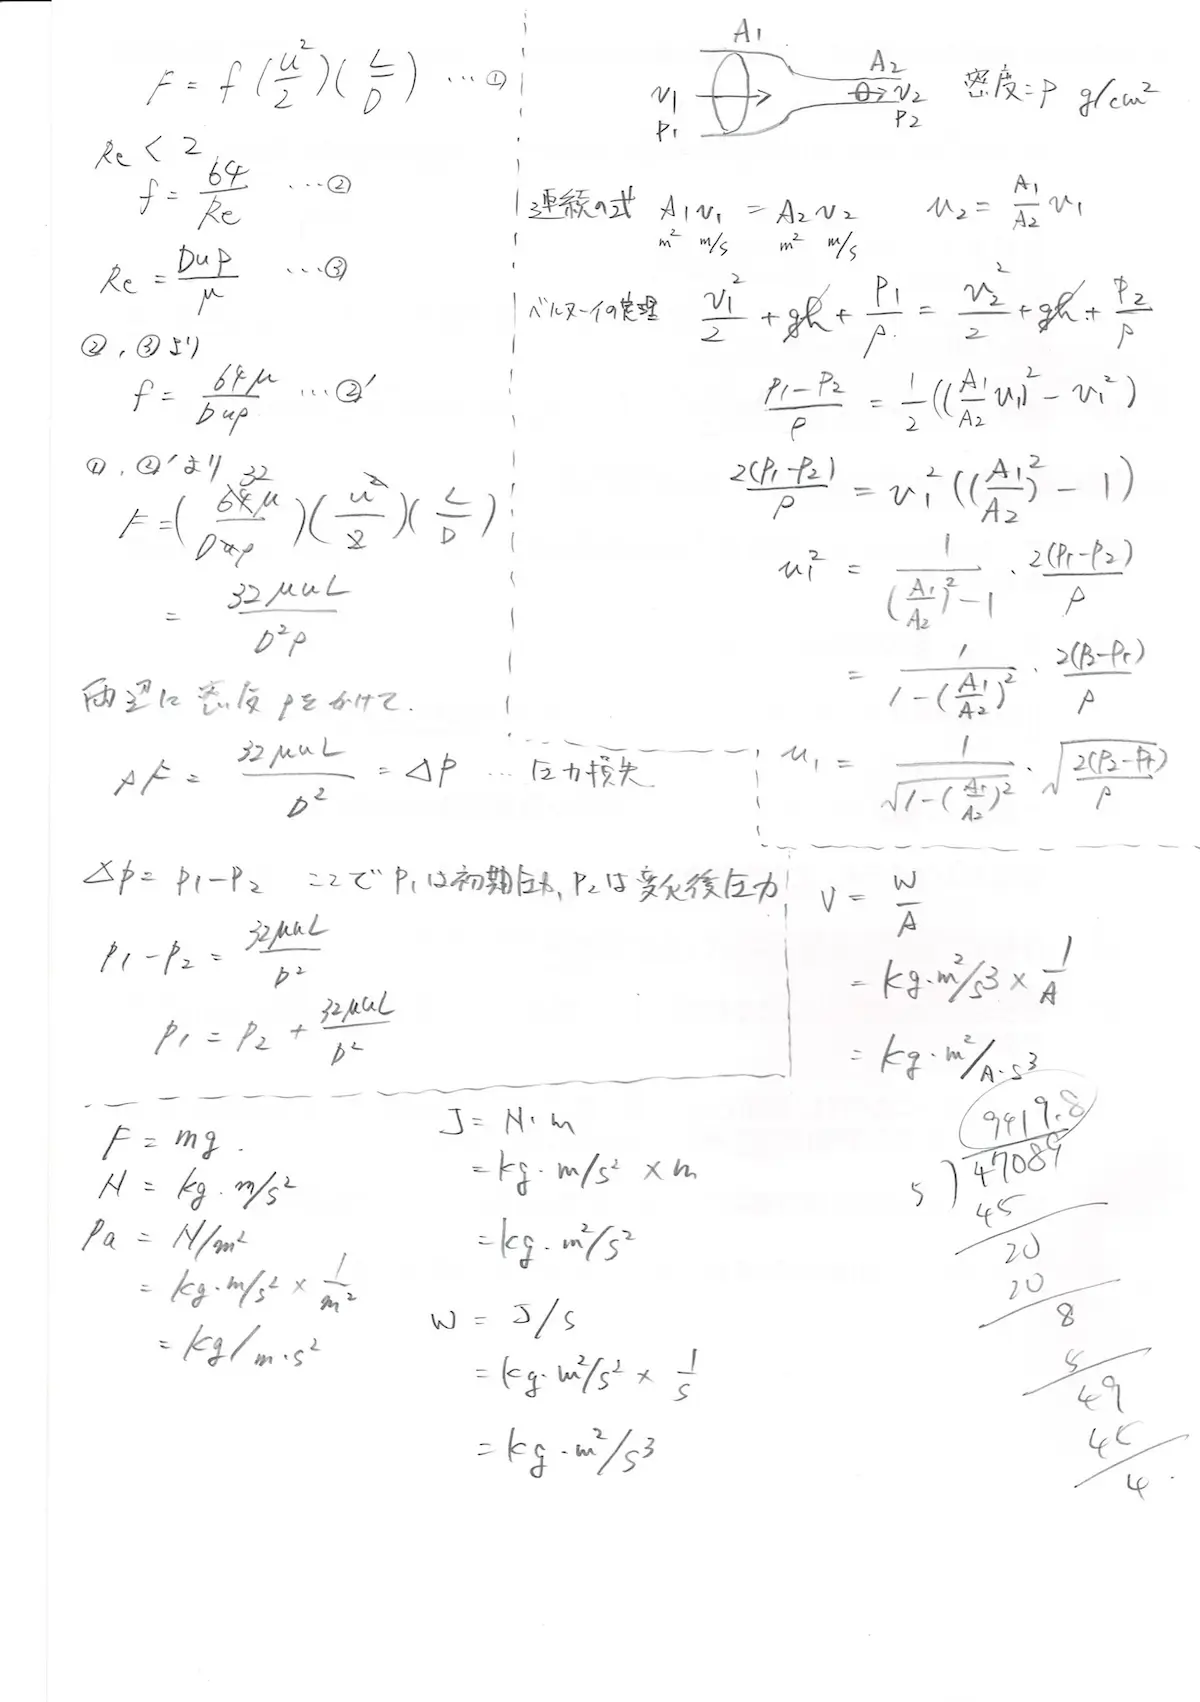 F = f (u²/2)(L/D) …①
Re < 2
f = 64/Re …②
Re = Duρ/μ …③
②, ③より
f = 64μ/Duρ …②'
①, ②'より
32
F = (64μ/Duρ)(u²/2)(L/D)
= 32μuL/D²ρ
両辺に密度ρをかけて.
ρF = 32μuL/D² = Δp … 圧力損失
Δp = p₁ − p₂ ここでp₁は初期圧力, p₂は変化後圧力
p₁ − p₂ = 32μuL/D²
p₁ = p₂ + 32μuL/D²
A₁
A₂
v₁ v₂
p₁ p₂
密度=ρ g/cm²
連続の式 A₁v₁ = A₂v₂ v₂ = A₁/A₂ v₁
m² m/s m² m/s
ベルヌーイの定理 v₁²/2 + gh + p₁/ρ = v₂²/2 + gh + p₂/ρ
(p₁−p₂)/ρ = 1/2((A₁/A₂ v₁)² − v₁²)
2(p₁−p₂)/ρ = v₁²((A₁/A₂)² − 1)
v₁² = 1/((A₁/A₂)² − 1) · 2(p₁−p₂)/ρ
= 1/(1 − (A₁/A₂)²) · 2(p₂−p₁)/ρ
v₁ = 1/√(1 − (A₁/A₂)²) · √(2(p₂−p₁)/ρ)
V = W/A
= kg·m²/s³ × 1/A
= kg·m²/A·s³
F = mg.
N = kg·m/s²
Pa = N/m²
= kg·m/s² × 1/m²
= kg/m·s²
J = N·m
= kg·m/s² × m
= kg·m²/s²
W = J/s
= kg·m²/s² × 1/s
= kg·m²/s³
9419.8
5)47089
45
20
20
8
5
49
45
4.